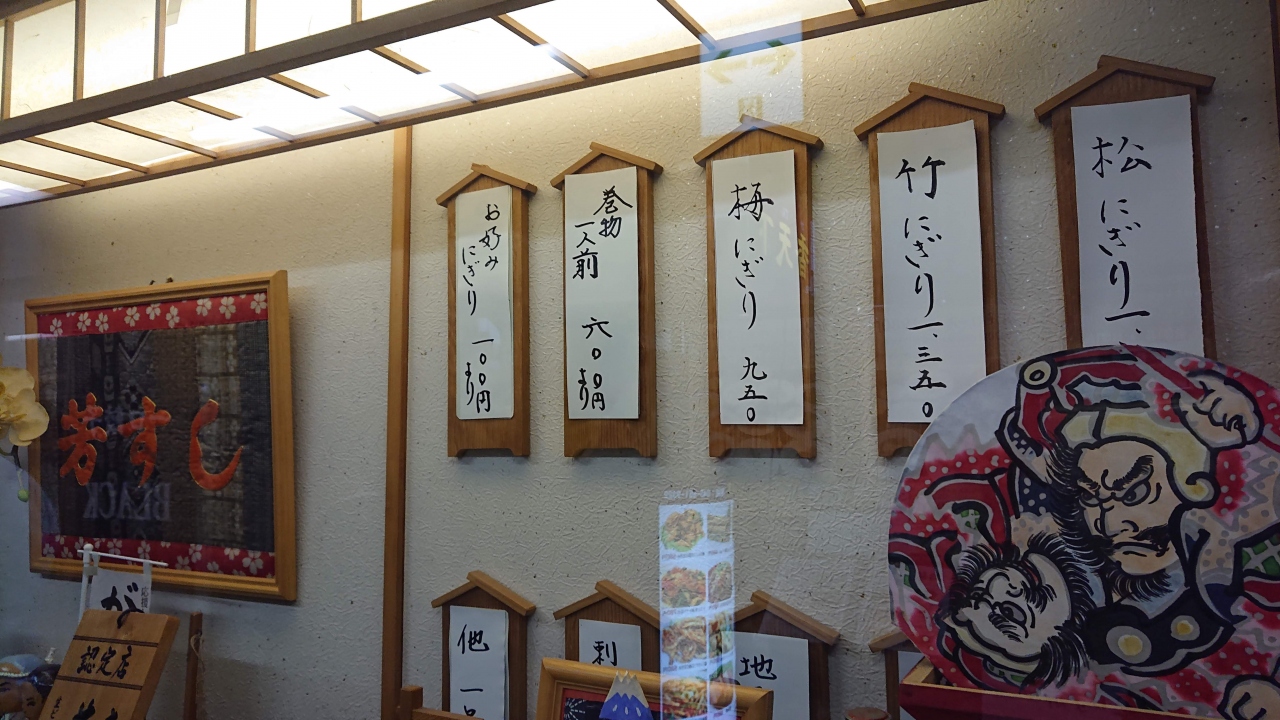 松 にぎり 一、
竹 にぎり 一、三五〇
梅 にぎり 九五〇
巻物
一人前 六〇〇円より
お好み
にぎり 一〇〇円より
芳すし
BLACK
が
認定店
他 一
刺
地